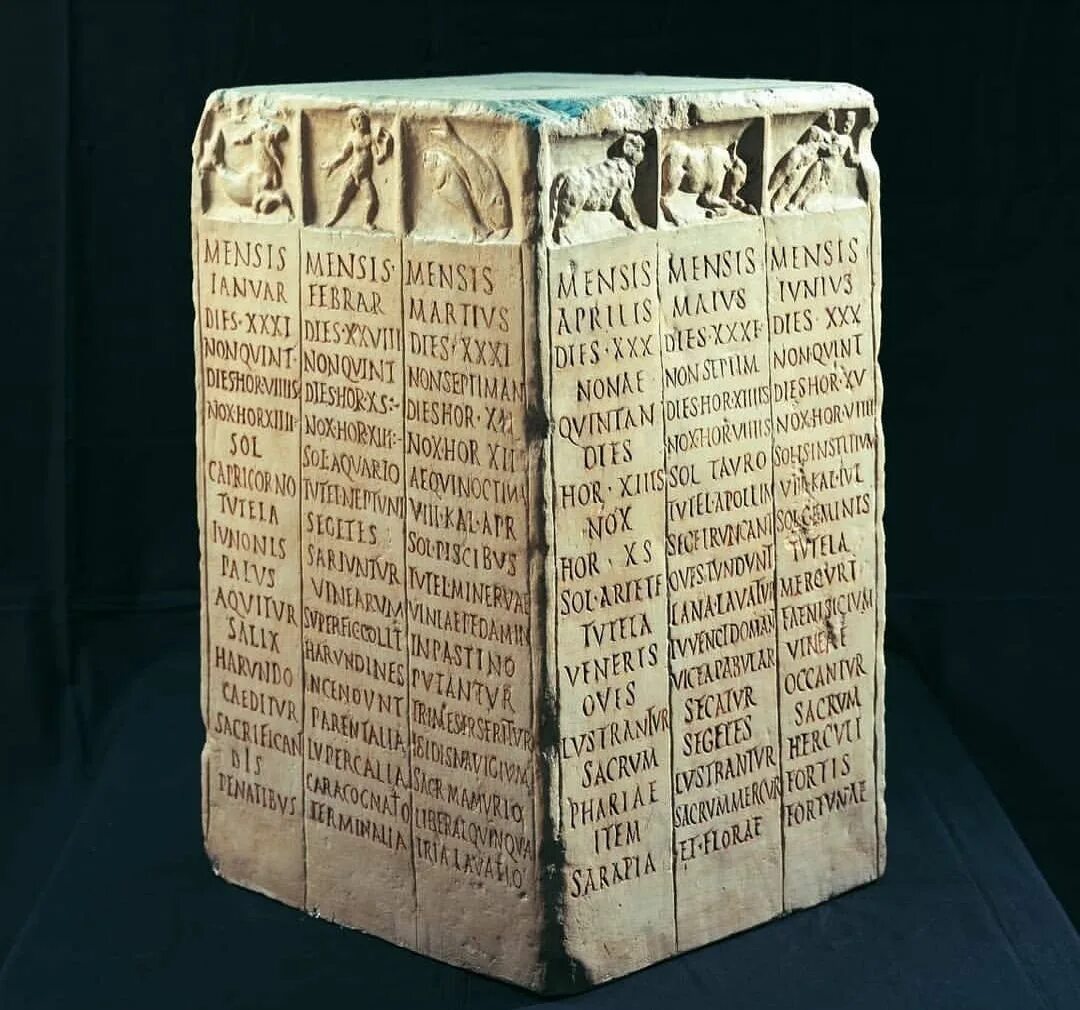 MENSIS
IANVAR
DIES·XXXI
NONQVINT·
DIESHOR·VIIIIS
NOX·HORXIIII·
SOL
CAPRICORNO
TVTELA
IVNONIS
PALVS
AQVITVR
SALIX
HARVNDO
CAEDITVR
SACRIFICAN
DIS
PENATIBVS
MENSIS·
FEBRAR
DIES·XXVIII
NONQVINT
DIESHOR·XS:-
NOX·HOR·XIII·-
SOL·AQVARIO
TVTEL·NEPTVNI
SEGETES
SARIVNTVR
VINEARVM
SVPERFIC·COLIT
HARVNDINES
INCENDVNT
PARENTALIA
LVPERCALIA
CARACOGNATO
TERMINALIA
MENSIS
MARTIVS
DIES·XXXI
NONSEPTIMAN
DIESHOR·XII
NOX·HOR XII
AEQVINOCTIVM
VIII·KAL·APR
SOL·PISCIBVS
TVTEL·MINERVAE
VINEAEPEDAMIN
INPASTINO
PVTANTVR
TRIMESTR·SERITVR
ISIDISNAVIGIVM
SACR·MAMVRIO
LIBERAL·QVINQVA
TRIA·LAVATIO
MENSIS
APRILIS
DIES·XXX
NONAE
QVINTAN
DIES
HOR·XIIIS
NOX
HOR·XS
SOL·ARIETE
TVTELA
VENERIS
OVES
LVSTRANTVR
SACRVM
PHARIAE
ITEM
SARAPIA
MENSIS
MAIVS
DIES·XXXI·
NON SEPTIM
DIESHOR·XIIIIS
NOX·HOR·VIIIIS
SOL TAVRO
TVTEL·APOLLIN
SEGETRVNCANT
OVESTVNDVNT
LANA·LAVATVR
IVVENCIDOMAN
VICEAPABVLAR
SECATVR
SEGETES
LVSTRANTVR
SACRVM·MERCVR
ET·FLORAE
MENSIS
IVNIVS
DIES XXX
NON·QVINT
DIESHOR·XV
NOX·HOR·VIIII
SOLISINSTITIVM
VIII·KAL·IVL
SOL·GEMINIS
TVTELA
MERCVRI
FAENISICIVM
VINEAE
OCCANTVR
SACRVM
HERCVLI
FORTIS
FORTVNAE